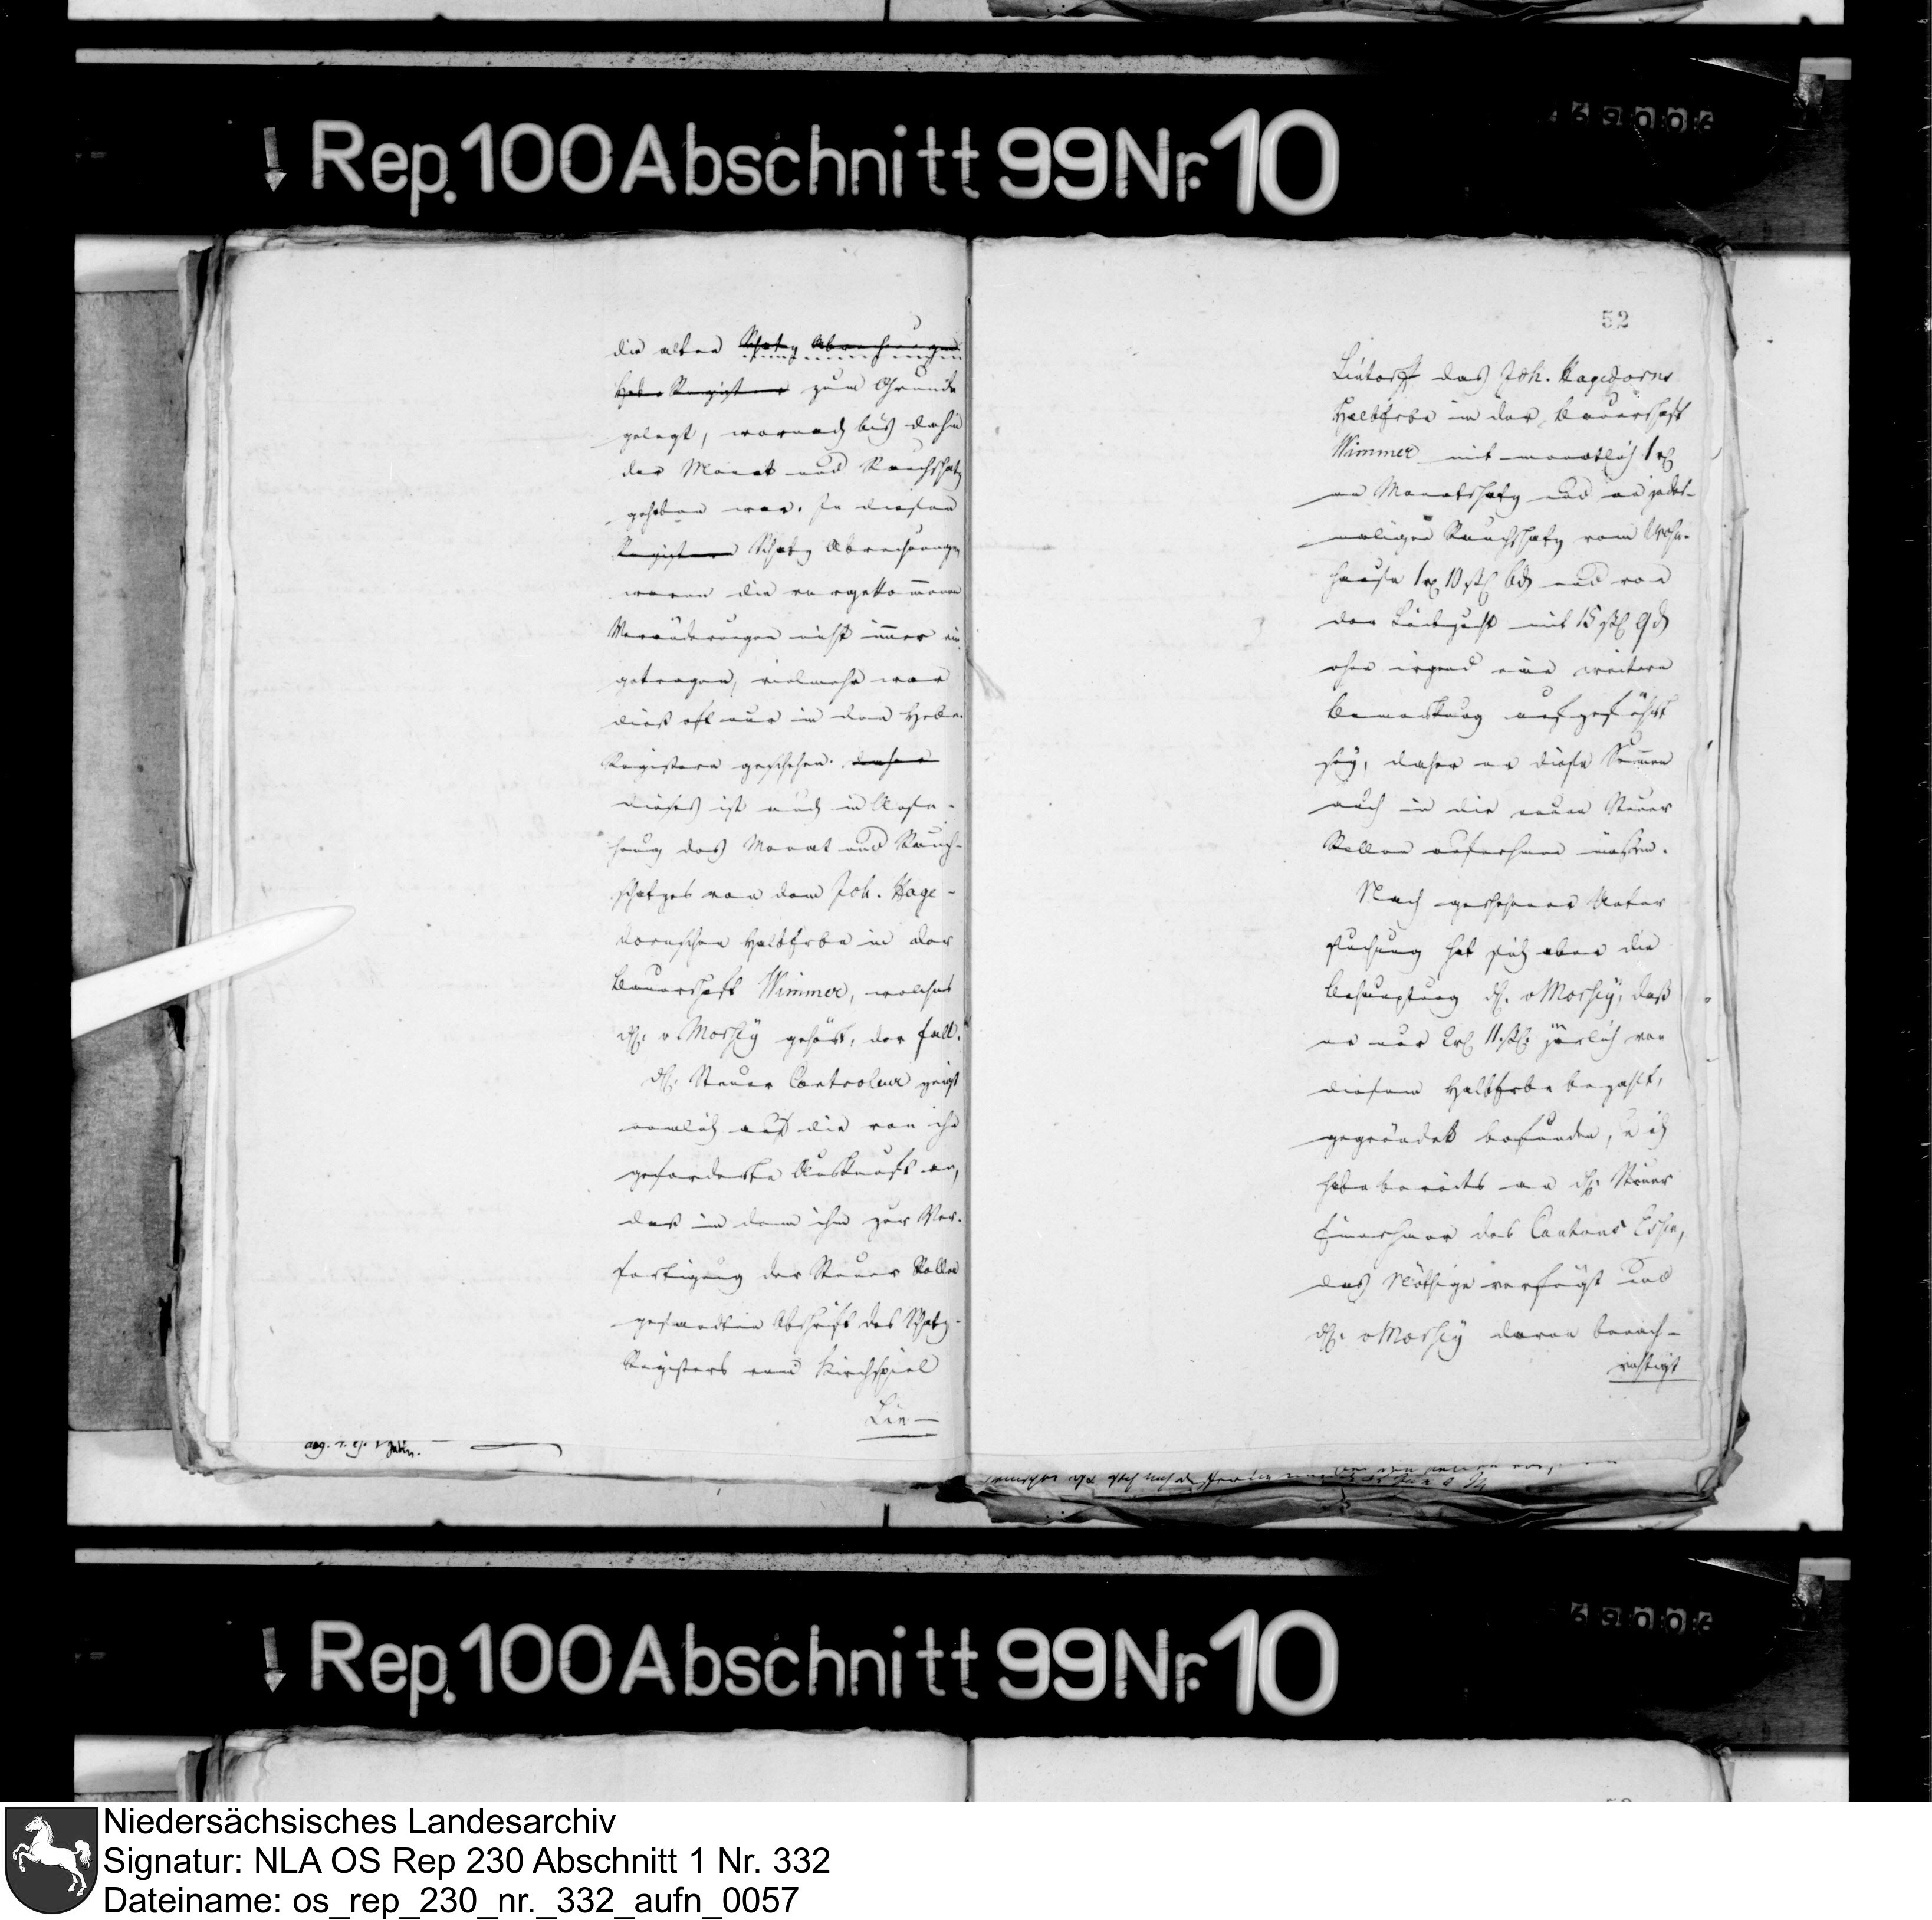 Rep. 100 Abschnitt 99 Nr. 10
69006
die alten Schatz Abrechnungen
Hebe Register zum Grunde
gelegt, wornach bis dahin
der Monat und Rauchschatz
gehoben war. In diesen
Registern Schatz Abrechnungen
waren die vorgekommenen
Veränderungen nicht immer ein
getragen, vielmehr war
dieß oft nur in den Hebe-
Registern geschehen. daher
dieses ist auch in Anse-
hung des Monat und Rauch-
schatzes von dem Joh. Hage-
dornschen Halberbe in der
Bauerschaft Wimmer, welches
H. v Morsey gehört, der Fall.
H. Steuer Controleur zeigt
nemlich auf die von ihm
geforderte Auskunft an,
daß in dem ihm zur Ver-
fertigung der Steuer Rollen
gesandten Abschrift des Schatz-
Registers vom Kirchspiel
Lin-
52
Lintorff das Joh. Hagedorns
Halberbe in der Bauerschaft
Wimmer mit monatlich 1 rt
an Monatschatz und an jedes-
maligen Rauchschatz vom Wohn-
hause 1 rt 10 ßl 6 d und von
der Leibzucht mit 15 ßl 9 d
ohne irgend eine weitere
Bemerkung aufgeführt
sey, daher er diese Summen
auch in die neuen Steuer
Rollen aufnehmen müssen.
Nach geschehener Unter
suchung hat sich aber die
Behauptung H. v Morsey, daß
er nur 2 rt 11 ßl järlich von
diesem Halberbe bezahlt,
gegründet befunden, u ich
habe bereits an H. Steuer
Einnehmer des Cantons Essen,
das Nöthige verfügt und
H. v Morsey davon benach-
richtigt
Rep. 100 Abschnitt 99 Nr. 10
69006
Niedersächsisches Landesarchiv
Signatur: NLA OS Rep 230 Abschnitt 1 Nr. 332
Dateiname: os_rep_230_nr._332_aufn_0057